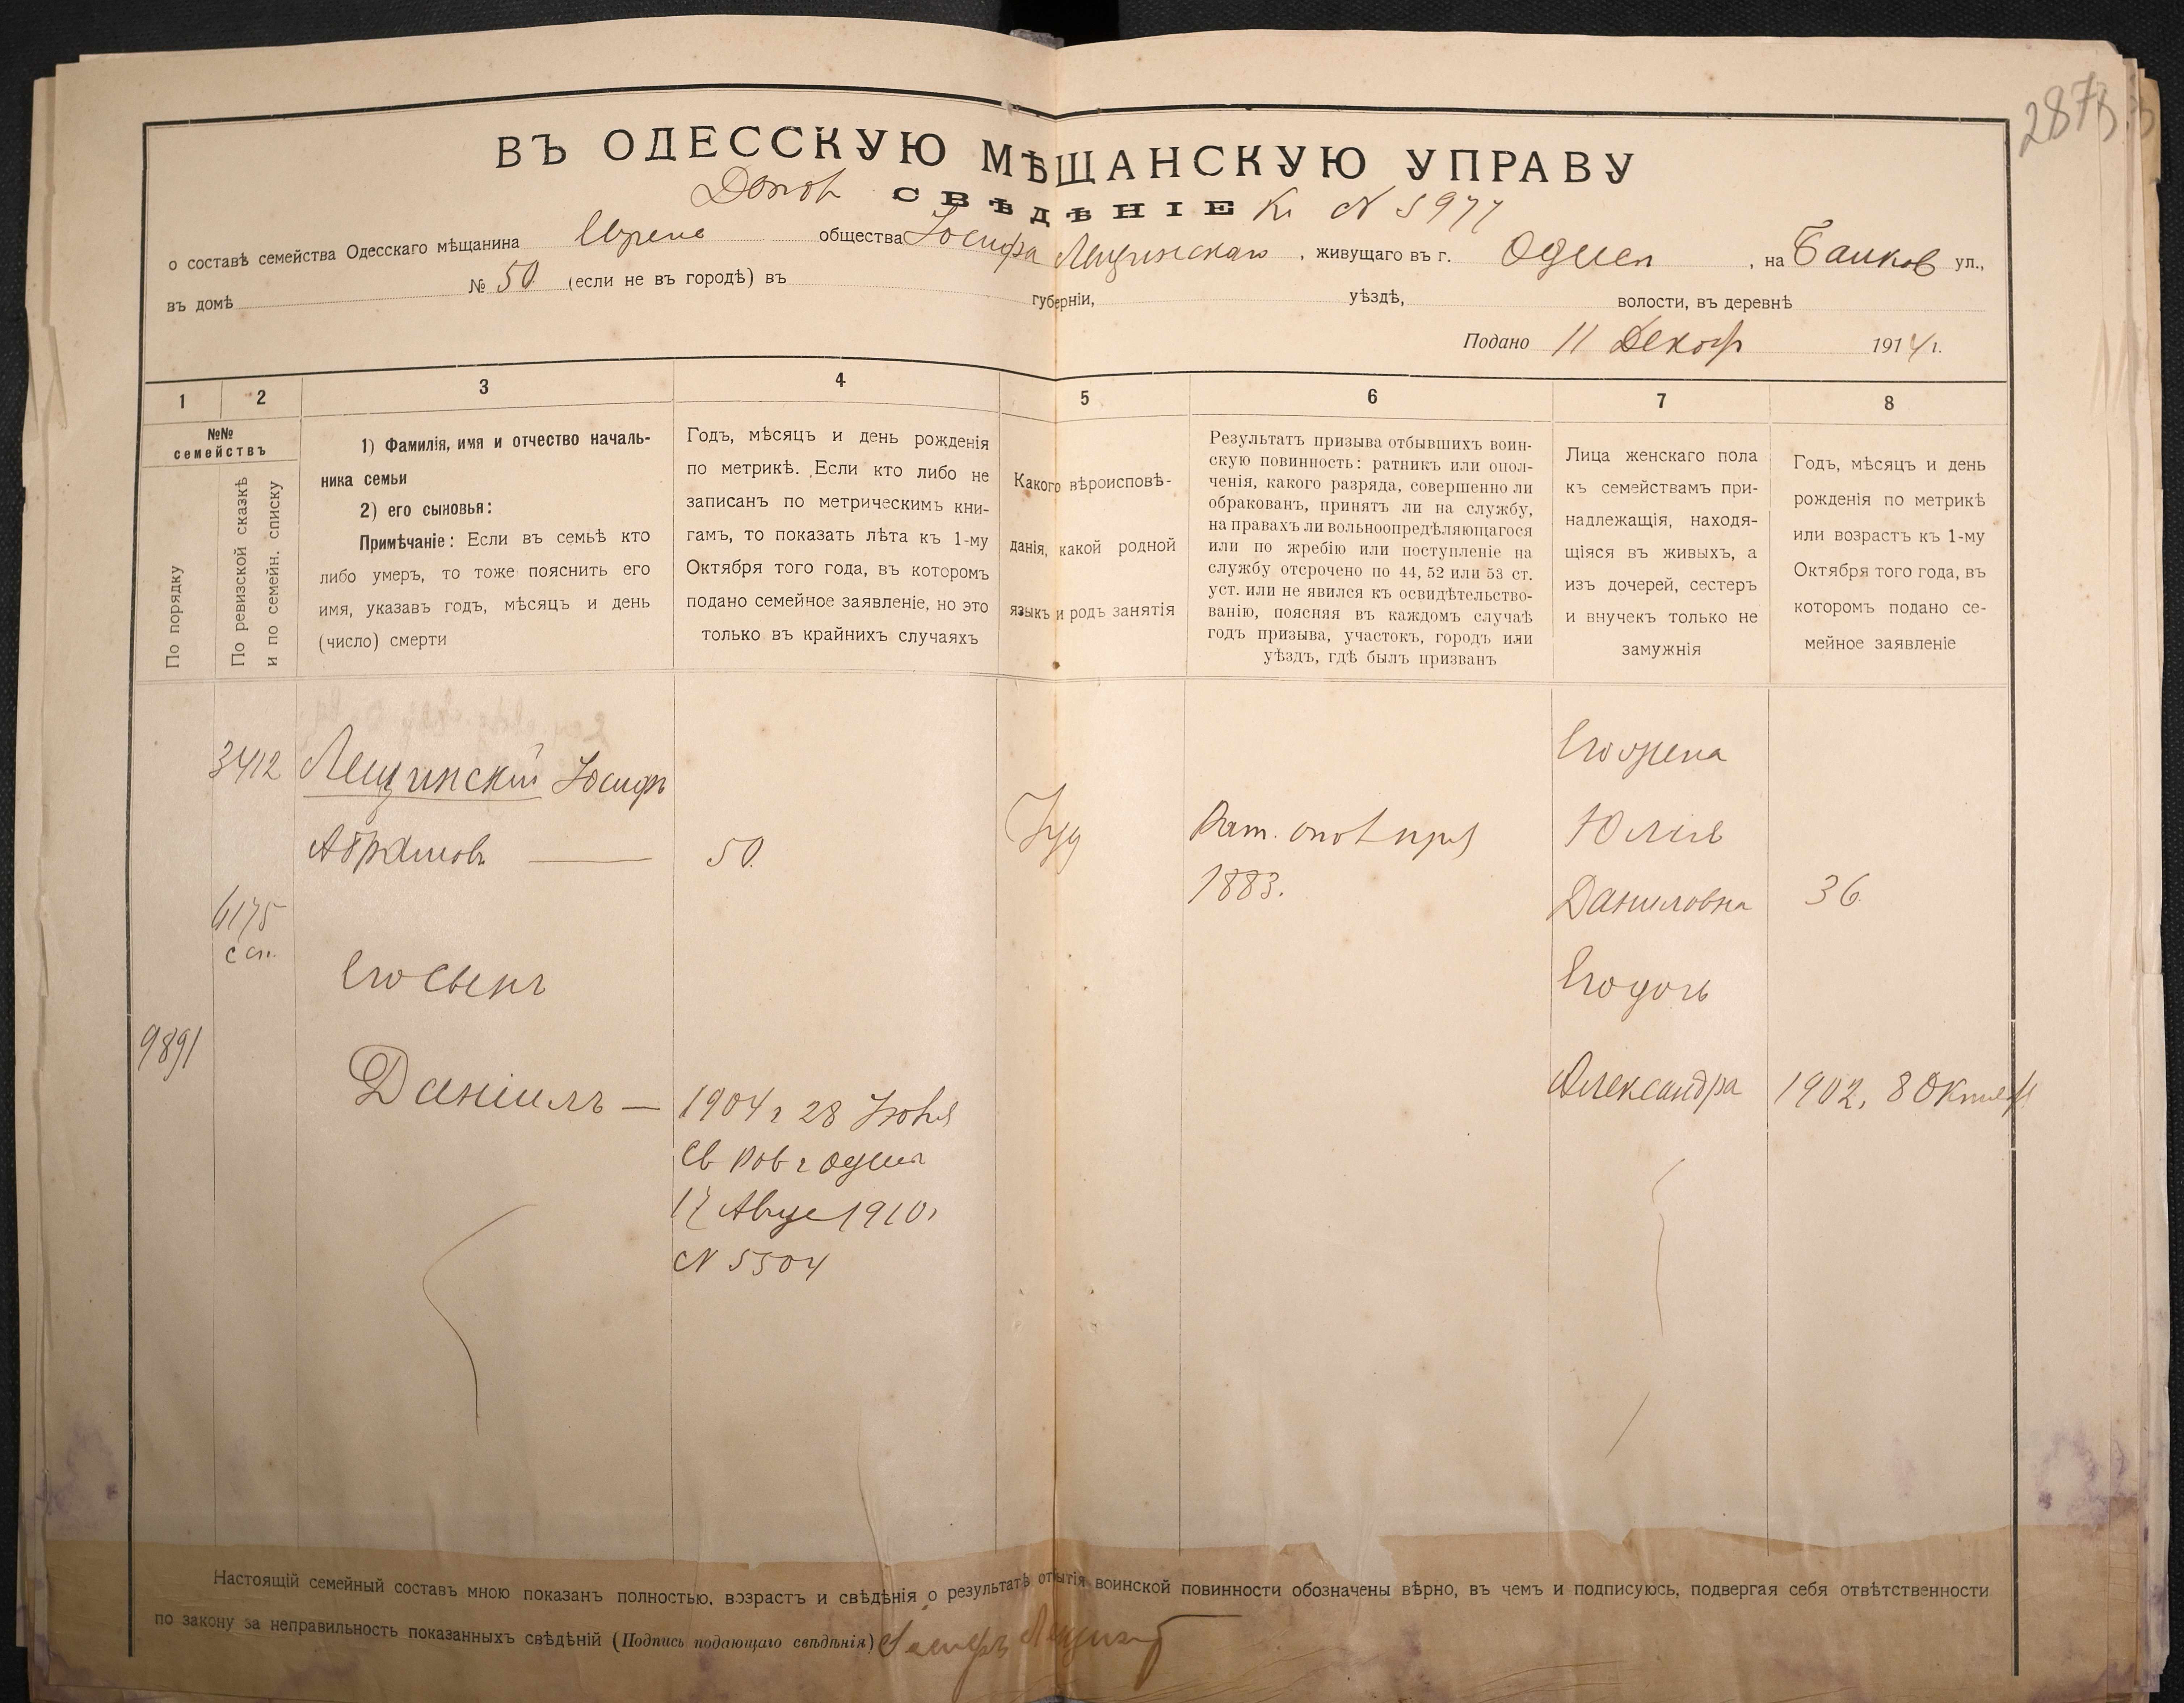 2873
ВЪ ОДЕССКУЮ МѢЩАНСКУЮ УПРАВУ
Допол СВѢДѢНІЕ Къ N 5977
о составѣ семейства Одесскаго мѣщанина Еврейс общества Іосифа Лещинскаго, живущаго въ г. Одессѣ, на Банков ул.,
въ домѣ № 50 (если не въ городѣ) въ губерніи, уѣздѣ, волости, въ деревнѣ
Подано 11 Декабр 1914 г.
1 2 3 4 5 6 7 8
№№ семействъ
По порядку
По ревизской сказкѣ
и по семейн. списку
1) Фамилія, имя и отчество началь-
ника семьи
2) его сыновья:
Примѣчаніе: Если въ семьѣ кто
либо умеръ, то тоже пояснить его
имя, указавъ годъ, мѣсяцъ и день
(число) смерти
Годъ, мѣсяцъ и день рожденія
по метрикѣ. Если кто либо не
записанъ по метрическимъ кни-
гамъ, то показать лѣта къ 1-му
Октября того года, въ которомъ
подано семейное заявленіе, но это
только въ крайнихъ случаяхъ
Какого вѣроисповѣ-
данія, какой родной
языкъ и родъ занятія
Результатъ призыва отбывшихъ воин-
скую повинность: ратникъ или опол-
ченія, какого разряда, совершенно ли
обракованъ, принятъ ли на службу,
на правахъ ли вольноопредѣляющагося
или по жребію или поступленіе на
службу отсрочено по 44, 52 или 53 ст.
уст. или не явился къ освидѣтельство-
ванію, поясняя въ каждомъ случаѣ
годъ призыва, участокъ, городъ или
уѣздъ, гдѣ былъ призванъ
Лица женскаго пола
къ семействамъ при-
надлежащія, находя-
щіяся въ живыхъ, а
изъ дочерей, сестеръ
и внучекъ только не
замужнія
Годъ, мѣсяцъ и день
рожденія по метрикѣ
или возрастъ къ 1-му
Октября того года, въ
которомъ подано се-
мейное заявленіе
3412 Лещинскій Іосифъ
Абрамовъ — 50. Іуд Рат. опол приз
1883.
Его жена
Юлія
Даниловна 36
6175
с сп.
Его сынъ
Его дочь
9891
Даніилъ — 1904 г 28 Іюня
Св Рав г Одессы
17 Авгус 1910 г
N 5504
Александра 1902, 8 Октяб
Настоящій семейный составъ мною показанъ полностью, возрастъ и свѣдѣнія о результатѣ отбытія воинской повинности обозначены вѣрно, въ чемъ и подписуюсь, подвергая себя отвѣтственности
по закону за неправильность показанныхъ свѣдѣній (Подпись подающаго свѣдѣнія) Іосифъ Лещинскій